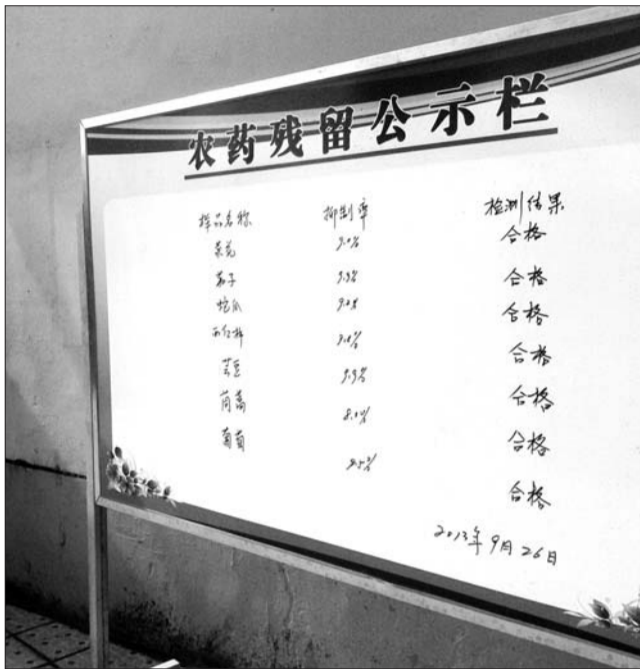 农药残留公示栏
样品名称 抑制率 检测结果
菜花 9.0% 合格
茄子 9.9% 合格
拖瓜 9.0% 合格
西红柿 9.0% 合格
芸豆 9.9% 合格
茼蒿 8.0% 合格
葡萄 9.5% 合格
2013年9月26日